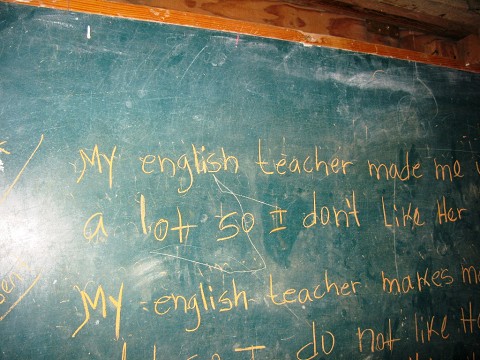 My english teacher made me
a lot so I don't like Her
My english teacher makes me
I do not like He